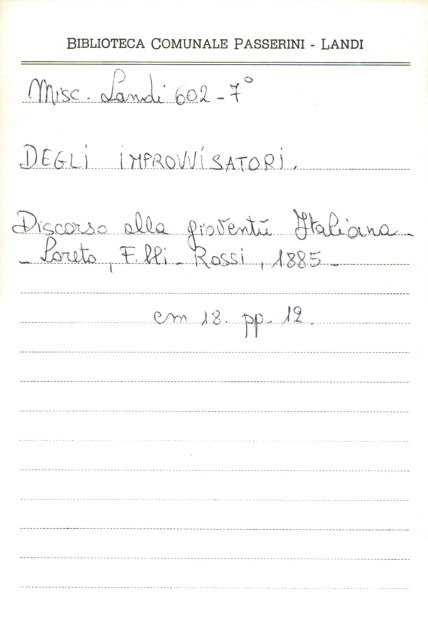 BIBLIOTECA COMUNALE PASSERINI - LANDI
Misc. Landi 602-7°
DEGLI IMPROVVISATORI.
Discorso alla gioventù Italiana -
- Loreto, F.lli - Rossi, 1885 -
cm 18. pp. 12.